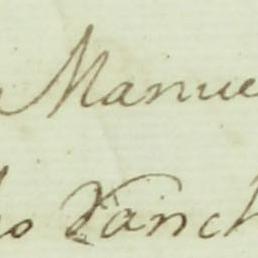 Manue
os Sanch